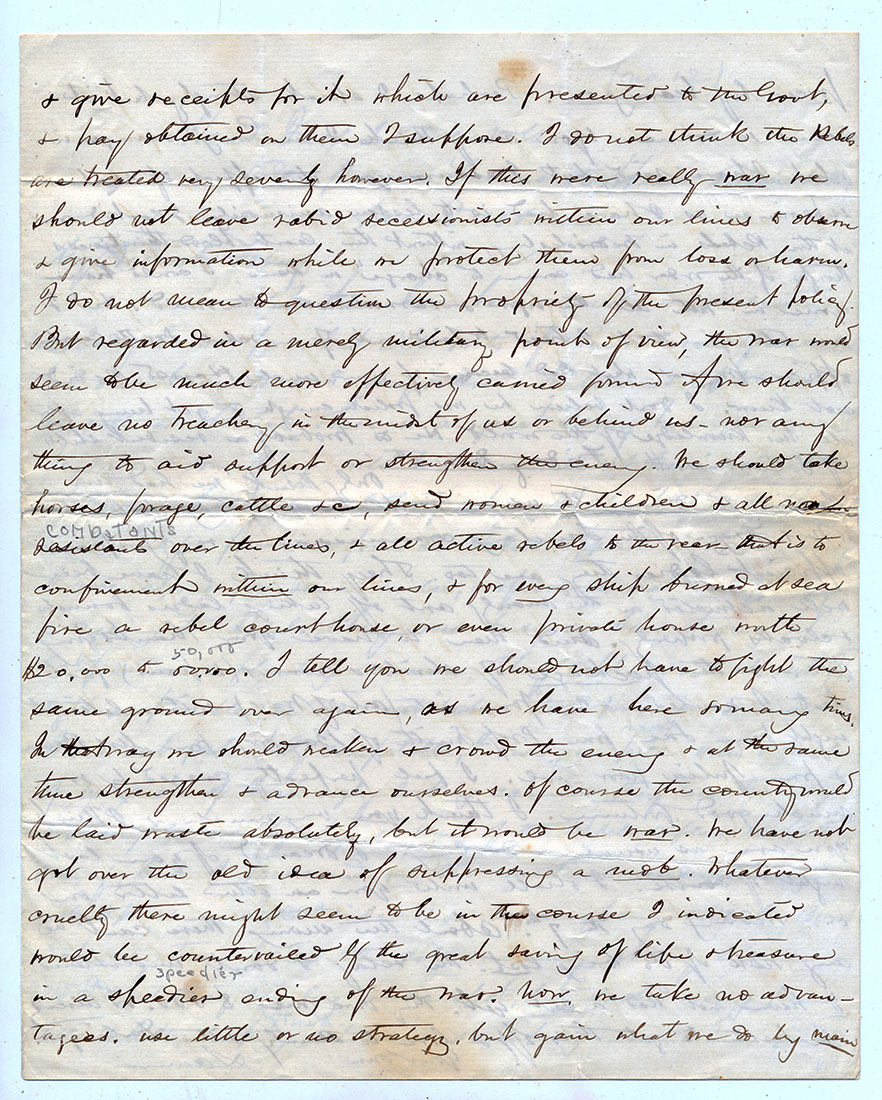 & give receipts for it which are presented to the Govt,
& pay obtained on them I suppose. I do not think the Rebels
are treated very severely however. If this were really war we
should not leave rabid secessionists within our lines to observe
& give information while we protect them from loss or harm.
I do not mean to question the propriety of the present policy.
But regarded in a merely military point of view, the war would
seem to be much more effectively carried forward if we should
leave no treachery in the midst of us or behind us - nor any
thing to aid support or strengthen the enemy. We should take
horses, forage, cattle &c, send women & children & all non
COMBATANTS
over the lines, & all active rebels to the rear that is to
confinement within our lines, & for every ship burned at sea
fire a rebel courthouse, or even private house worth
50,000
$20,000 to 50000. I tell you we should not have to fight the
same ground over again, as we have here so many times.
In that way we should weaken & crowd the enemy & at the same
time strengthen & advance ourselves. Of course the country would
be laid waste absolutely, but it would be war. We have not
got over the old idea of suppressing a mob. Whatever
cruelty there might seem to be in the course I indicated
would be countervailed by the great saving of life & treasure
speedier
in a speedier ending of the war. Now, we take no advan-
tages. use little or no strategy, but gain what we do by main